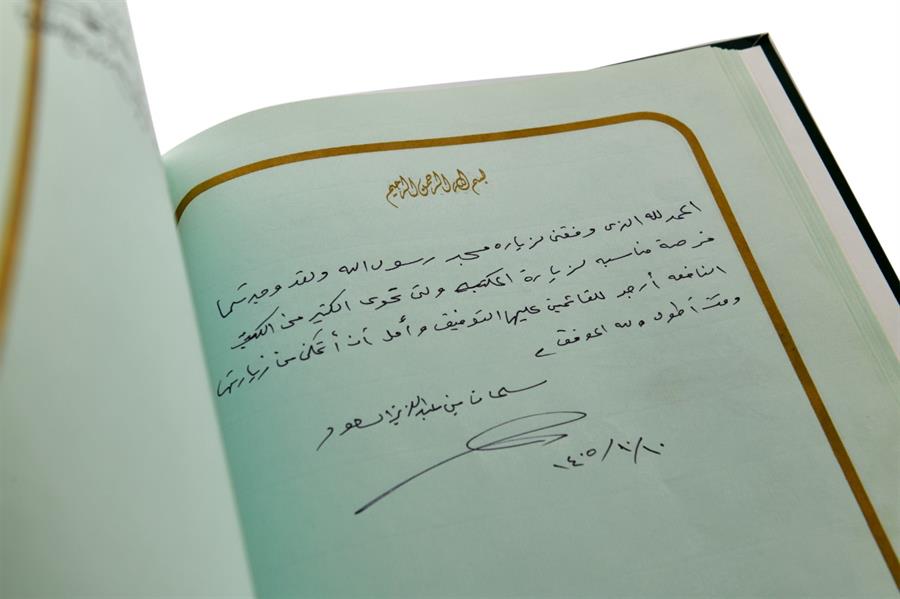 بسم الله الرحمن الرحيم
الحمد لله الذي وفقني لزيارة مسجد رسول الله ولقد وجدتها
فرصة مناسبه لزيارة المكتبه ولتي تحوي الكثير من الكتب
النافعه أرجو للقائمين عليها التوفيق وأمل أن أتمكن من زيارتها
وقت أطول ولله الموفق
سلمان بن عبدالعزيز السعود
١٤٠٥/١٠/١٠